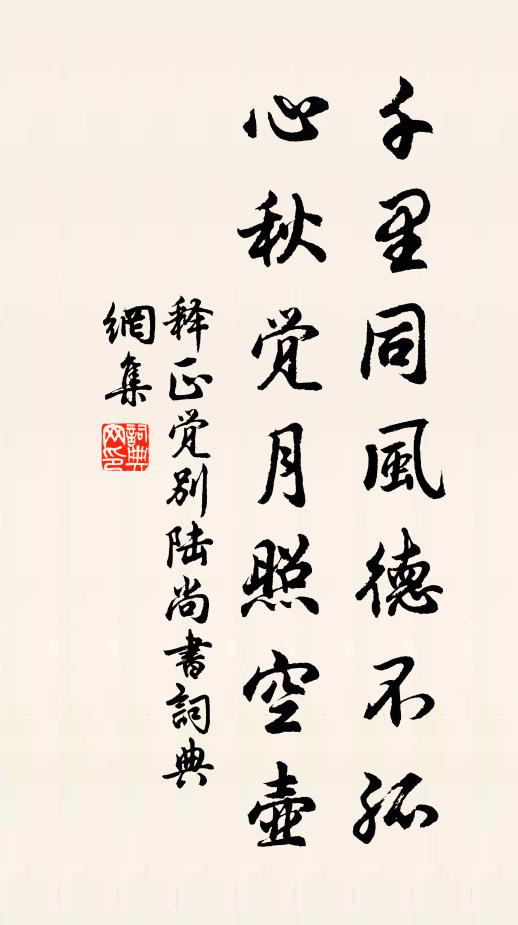 千里同風德不孤
心秋觉月照空壺
释正觉别陆尚書詞典
網集
詞典
网印